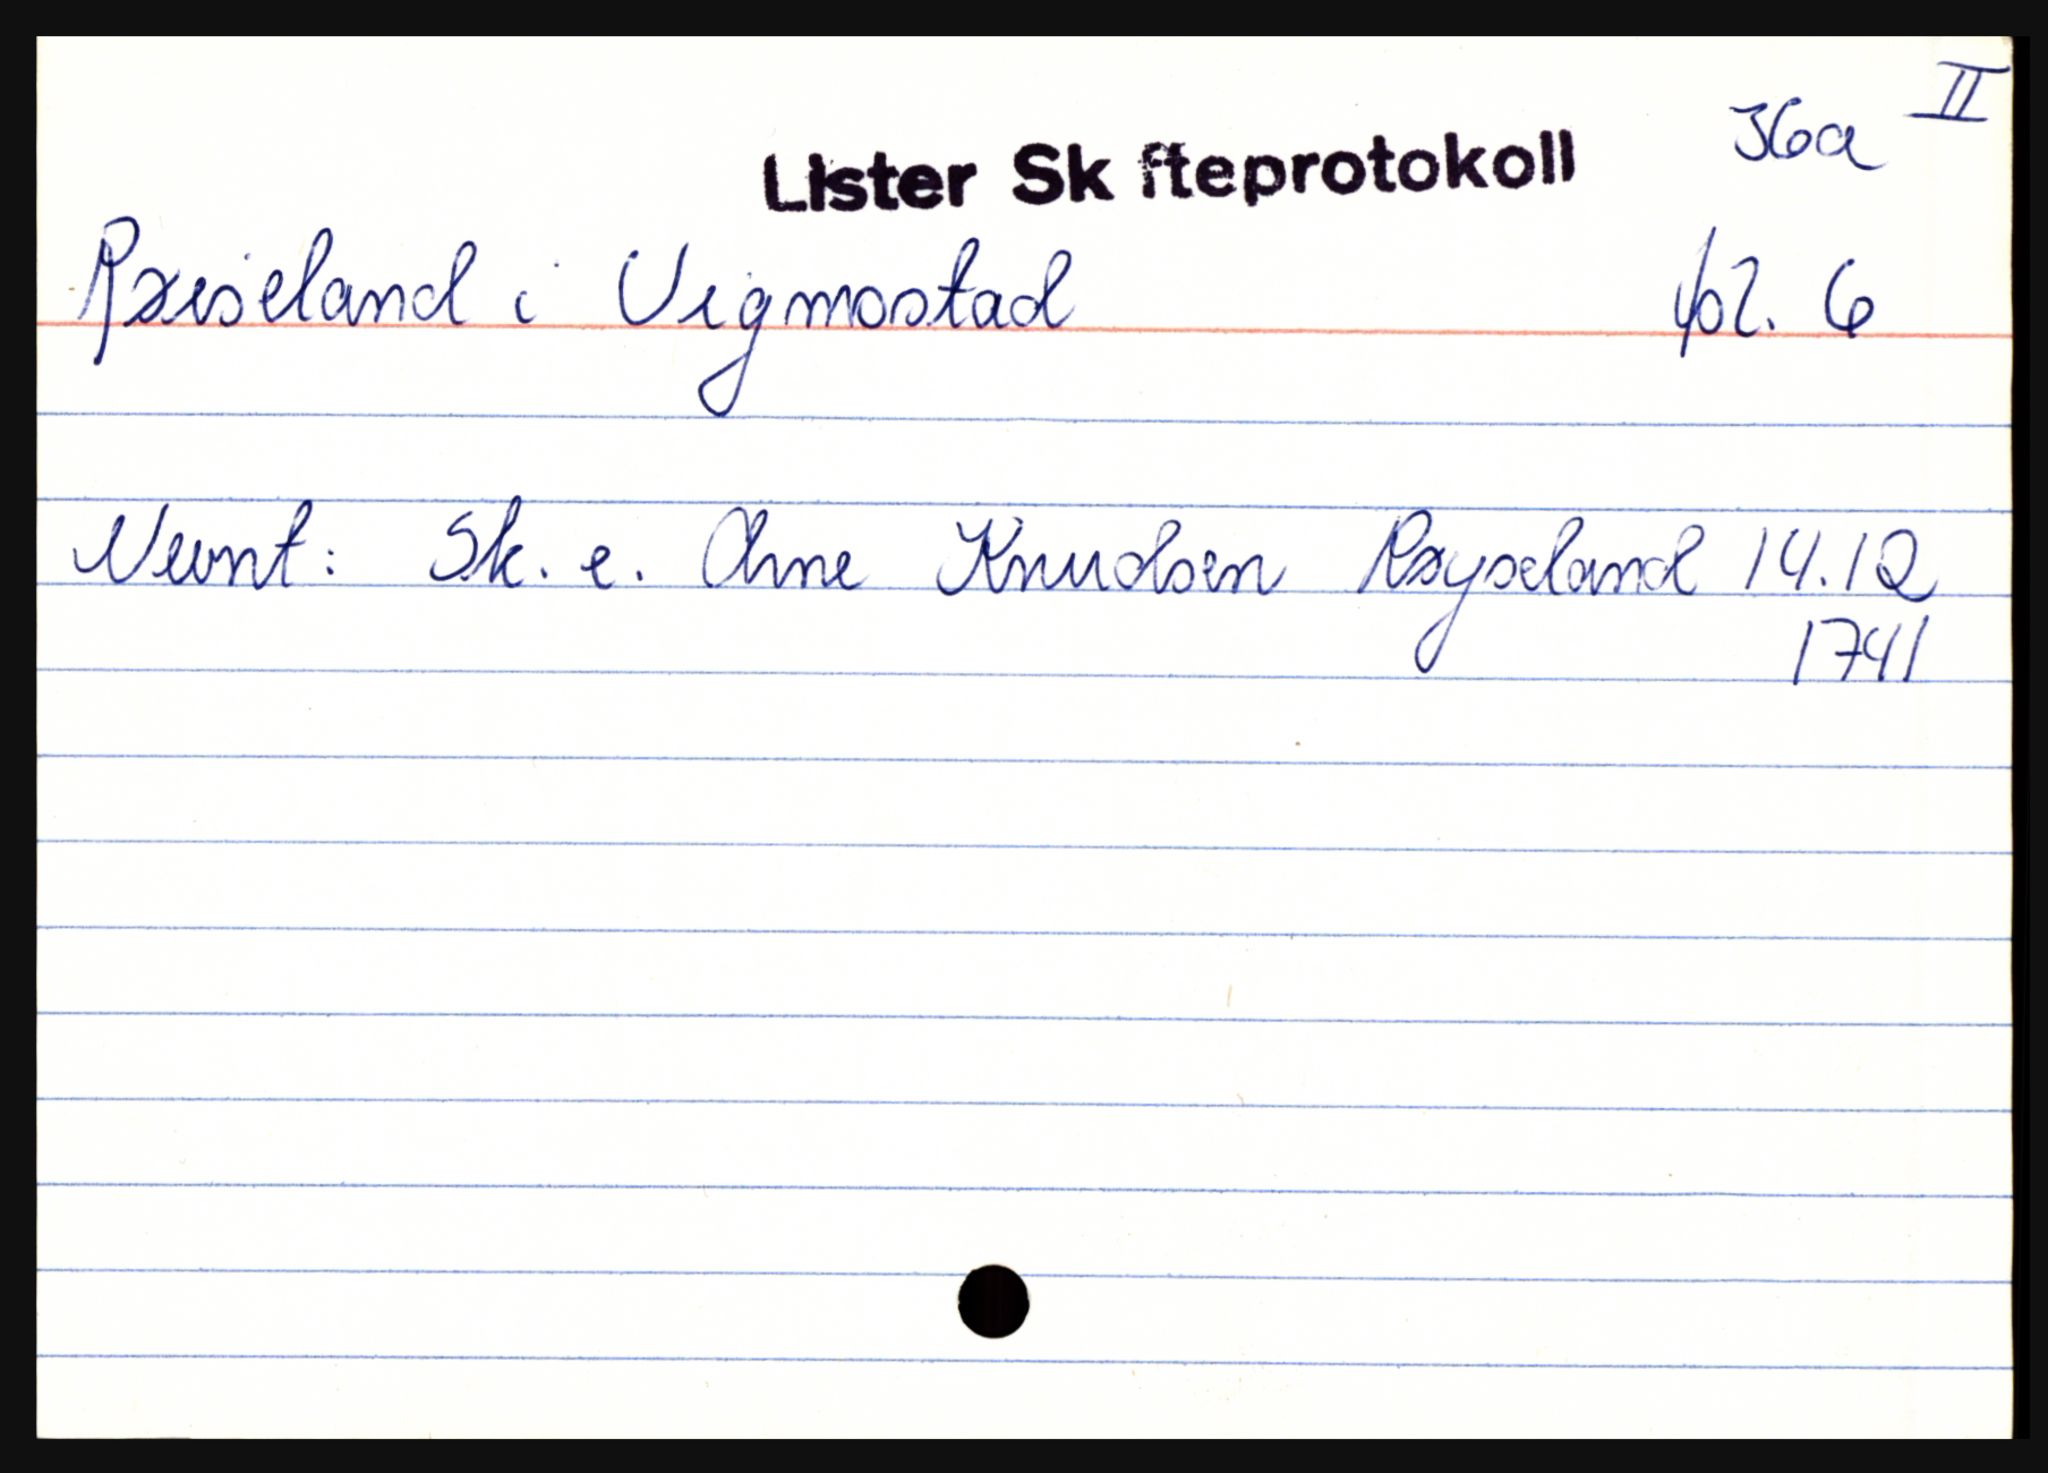 II
Lister Sk fteprotokoll 36a
Ræiseland i Vigmostad fol. 6
Nevnt: Sk. e. Ane Knudsen Røyseland 14.12
1741